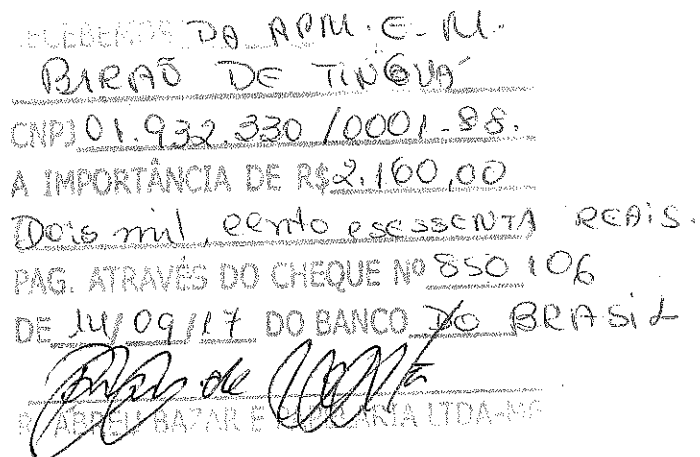 RECEBEMOS DA APM. E. M.
BARÃO DE TINGUÁ
CNPJ 01.932.330/0001-98.
A IMPORTÂNCIA DE R$ 2.160,00
Dois mil, cento e sessenta REAIS.
PAG. ATRAVÉS DO CHEQUE Nº 850106
DE 14/09/17 DO BANCO DO BRASIL
R ABREU BAZAR E PAPELARIA LTDA-ME